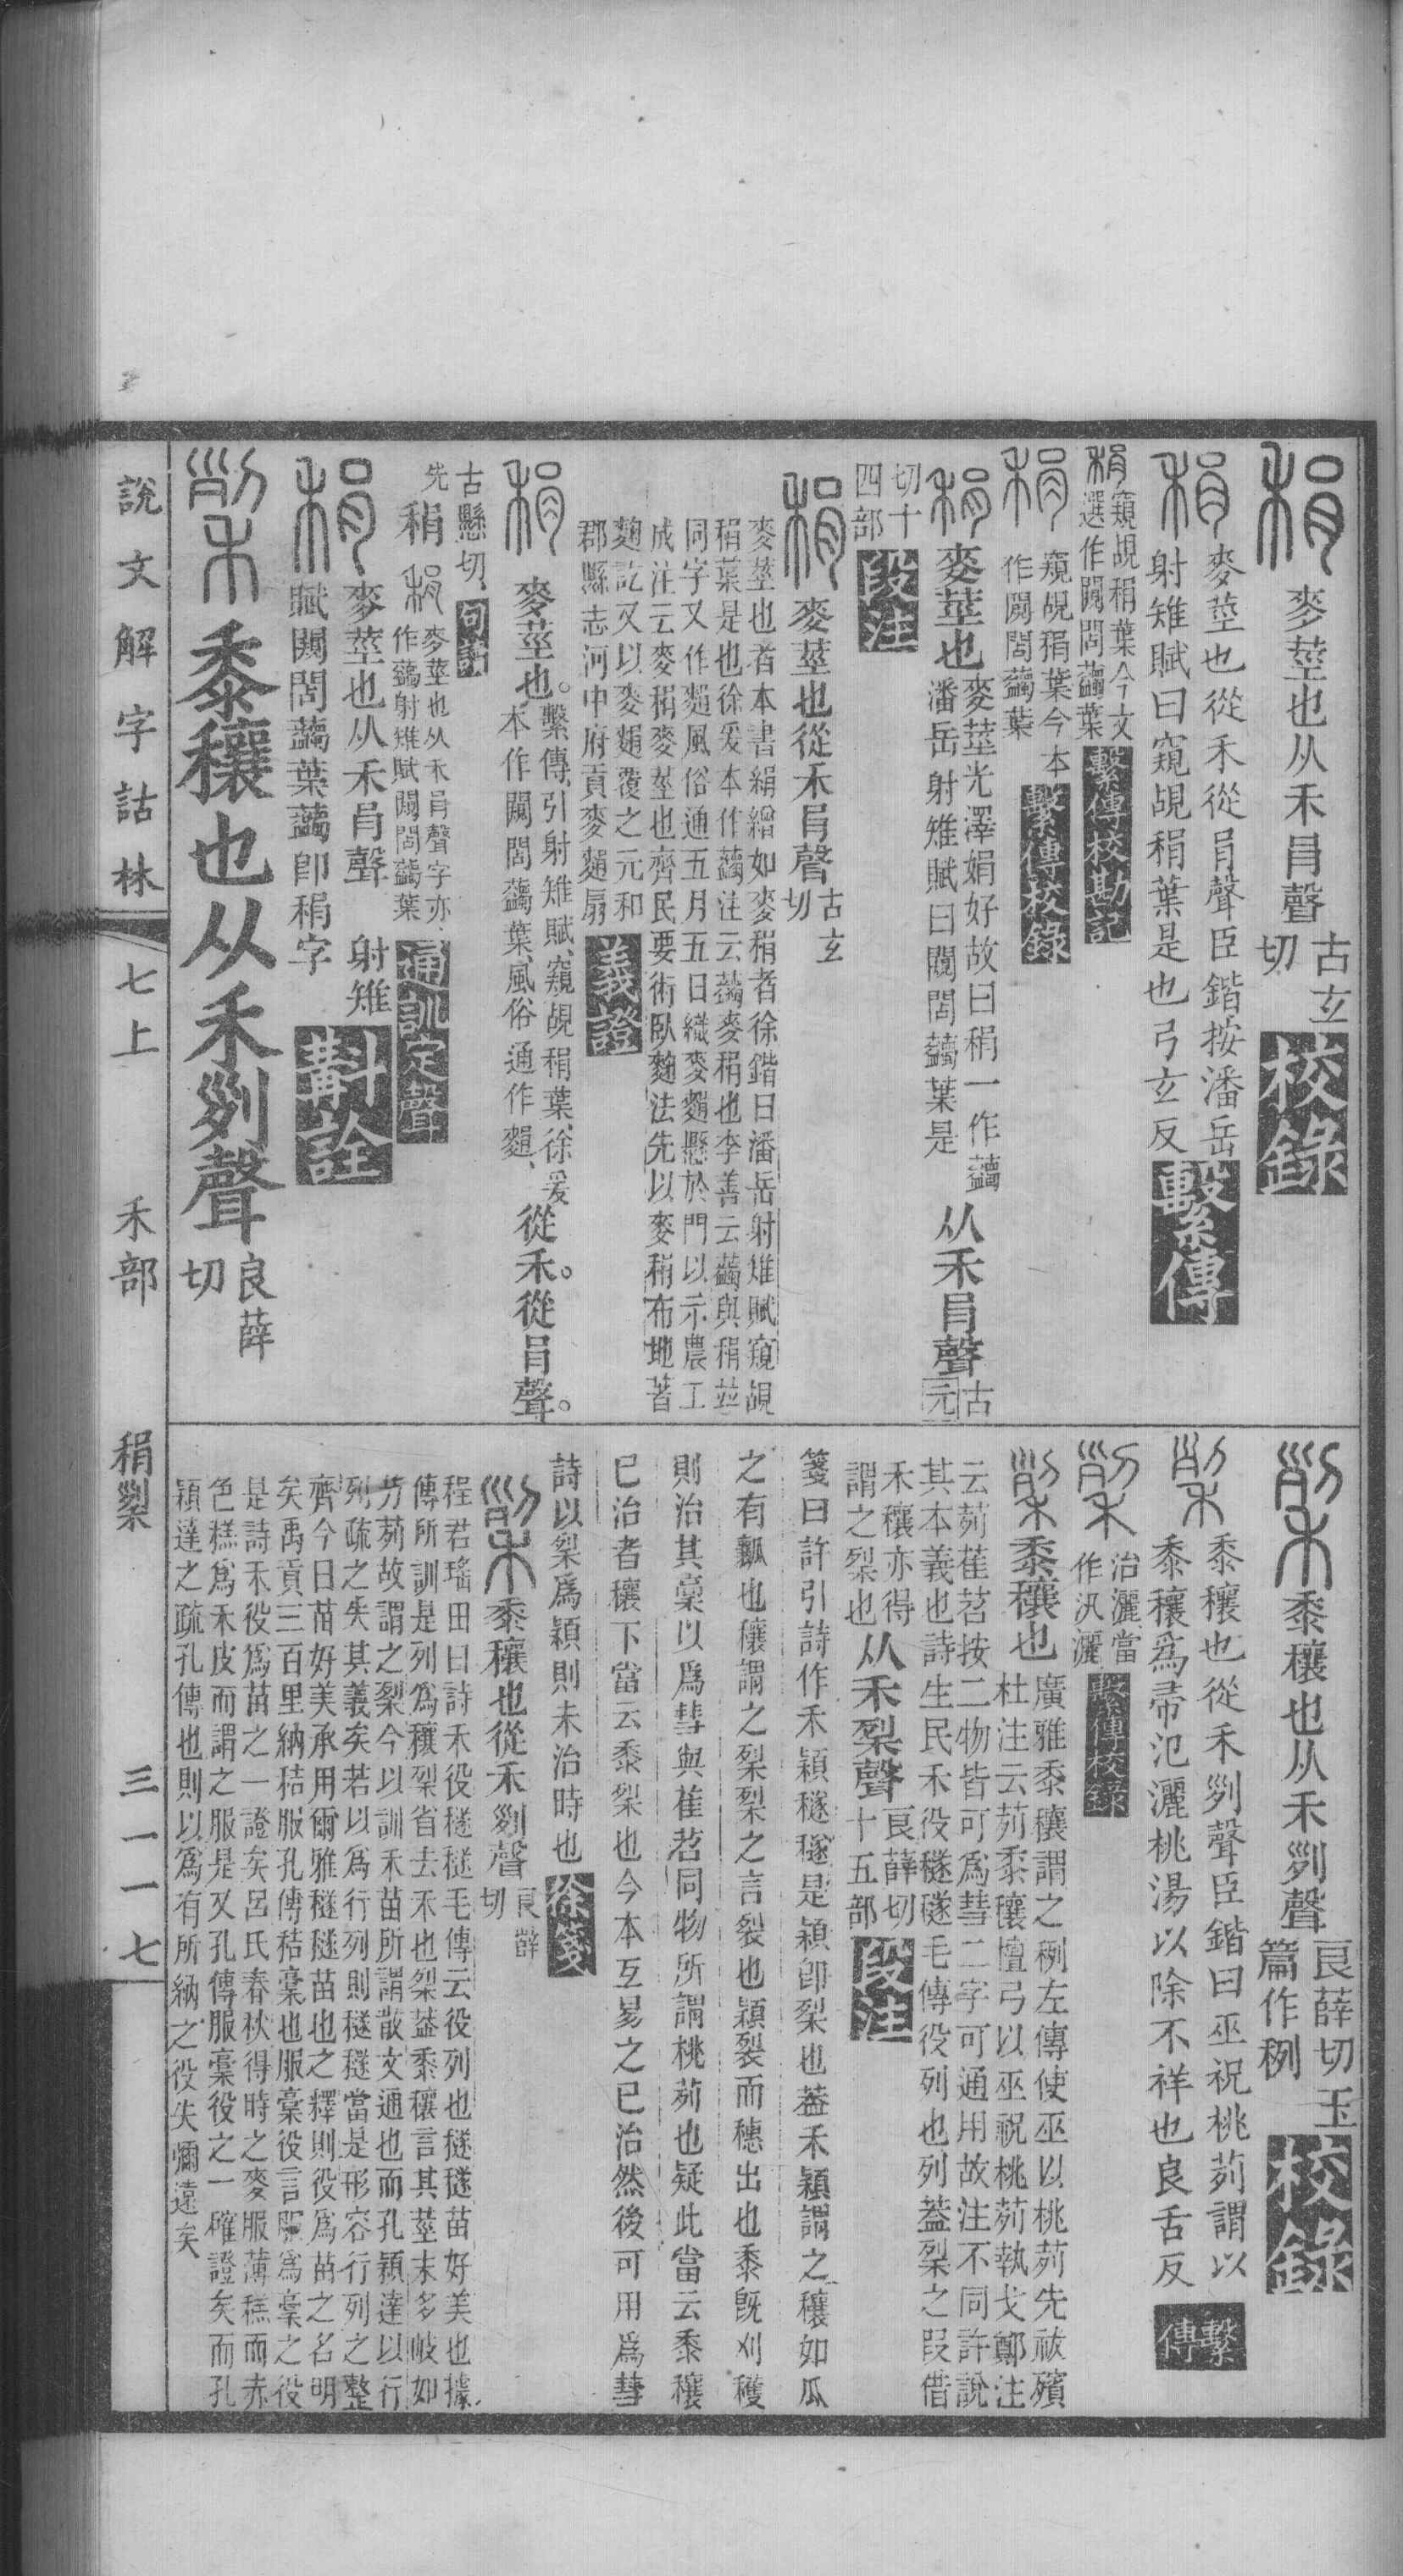 稍 麥莖也从禾肙聲古玄切 校錄
麥莖也從禾從肙聲臣鍇按潘岳
射雉賦曰窺覘稍葉是也弓玄反 繫傳
窺覘稍葉今文
選作闚䦚䕎葉 繫傳校勘記
窺覘稍葉今本
作闚䦚䕎葉 繫傳校錄
麥莖也麥莖光澤娟好故曰稍一作䕎
潘岳射雉賦曰闚䦚䕎葉是 从禾肙聲古元
切十
四部 段注
麥莖也從禾肙聲古玄切
麥莖也者本書絹繒如麥稍者徐鍇曰潘岳射雉賦窺覘
稍葉是也徐爰本作䕎注云䕎麥稍也李善云䕎與稍並
同字又作䴺風俗通五月五日織麥䴺懸於門以示農工
成注云麥稍麥莖也齊民要術臥麴法先以麥稍布地著
麴訖又以麥䴺覆之元和
郡縣志河中府貢麥䴺扇 義證
麥莖也。繫傳、引射雉賦、窺覘稍葉、徐爰
本作闚䦚䕎葉、風俗通作䴺、從禾。從肙聲。
古懸切、句讀
先 稍 麥莖也从禾肙聲字亦
作䕎射雉賦闚䦚䕎葉 通訓定聲
麥莖也从禾肙聲 射雉
賦闚䦚䕎葉䕎卽稍字 斠詮
黍穰也从禾𠛱聲良薛切
說文解字詁林 七上 禾部 稍𥞥 三一一七
黍穰也从禾𠛱聲良薛切玉
篇作栵 校錄
黍穰也從禾𠛱聲臣鍇曰巫祝桃茢謂以
黍穰爲帚氾灑桃湯以除不祥也良舌反 繫傳
治灑當
作汎灑 繫傳校錄
黍穰也廣雅黍穰謂之𥝧左傳使巫以桃茢先祓殯
杜注云茢黍穰檀弓以巫祝桃茢執戈鄭注
云茢萑苕按二物皆可爲彗二字可通用故注不同許說
其本義也詩生民禾役穟穟毛傳役列也列蓋𥞥之叚借
禾穰亦得
謂之𥞥也 从禾𥞥聲良薛切
十五部 段注
箋曰許引詩作禾穎穟穟是穎卽𥞥也蓋禾穎謂之穰如瓜
之有瓤也穰謂之𥞥𥞥之言裂也穎裂而穗出也黍旣刈穫
則治其稾以爲彗與萑苕同物所謂桃茢也疑此當云黍穰
已治者穰下當云黍𥞥也今本互易之已治然後可用爲彗
詩以𥞥爲穎則未治時也 徐箋
黍穰也從禾𠛱聲良辥切
程君瑤田曰詩禾役穟穟毛傳云役列也穟穟苗好美也據
傳所訓是列爲穰𥞥省去禾也𥞥蓋黍穰言其莖末多岐如
艻茢故謂之𥞥今以訓禾苗所謂散文通也而孔穎達以行
列疏之失其義矣若以爲行列則穟穟當是形容行列之整
齊今曰苗好美承用爾雅穟穟苗也之釋則役爲苗之名明
矣禹貢三百里納秸服孔傳秸稾也服稾役言服爲稾之役
是詩禾役爲苗之一證矣呂氏春秋得時之麥服薄糕而赤
色糕爲禾皮而謂之服是又孔傳服稾役之一確證矣而孔
穎達之疏孔傳也則以爲有所納之役失彌遠矣